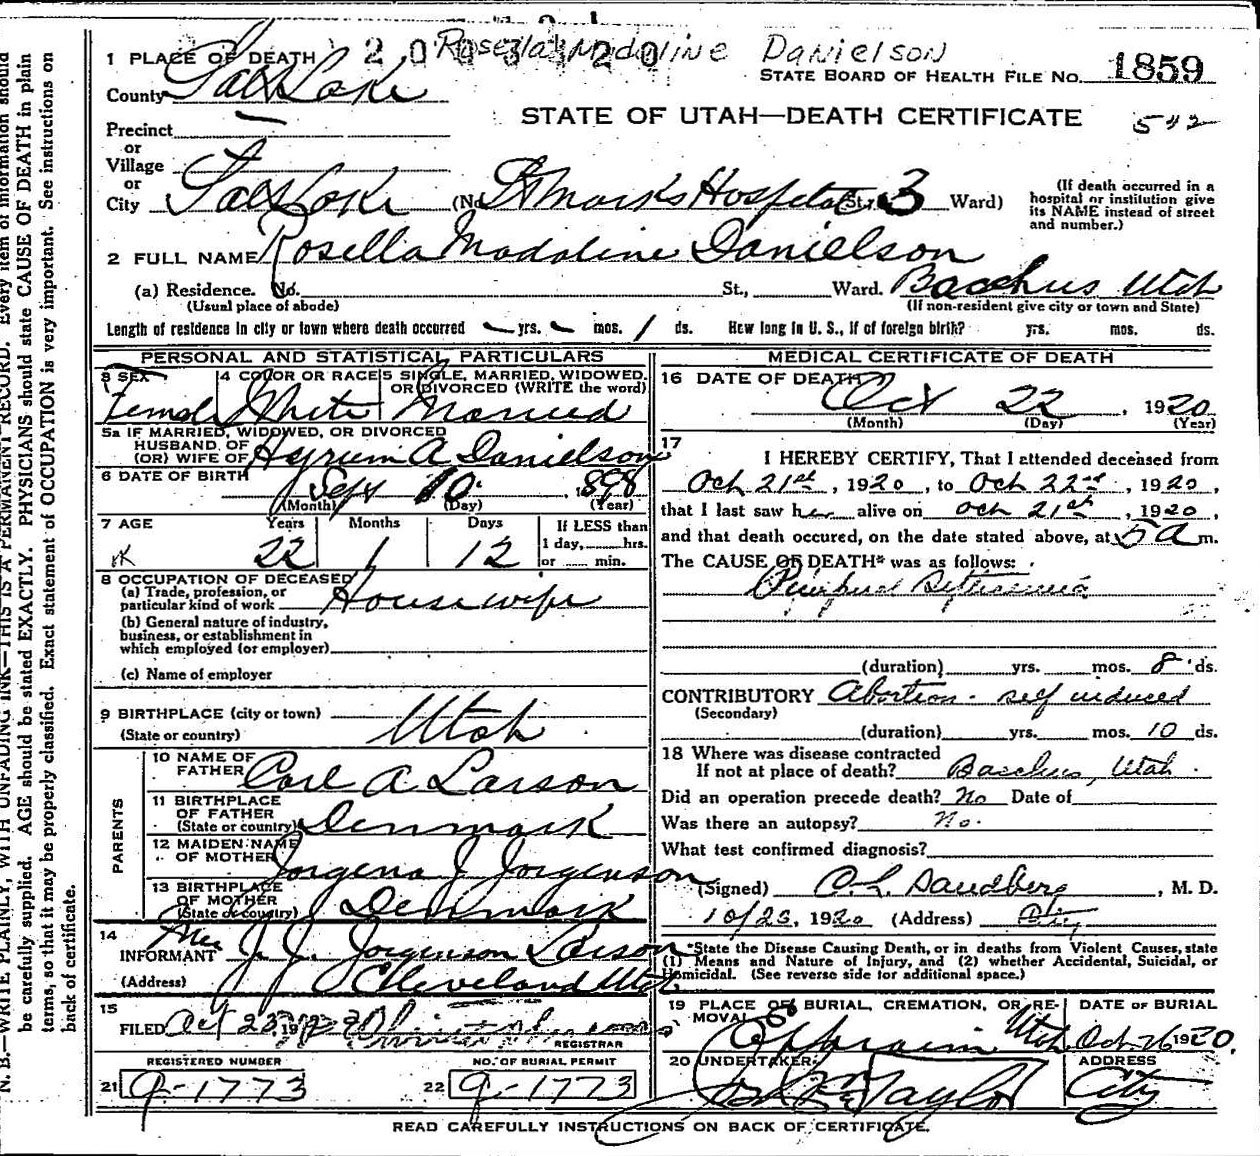 Rosella Madoline Danielson
2003320
1 PLACE OF DEATH
STATE BOARD OF HEALTH FILE NO. 1859
County Salt Lake
STATE OF UTAH—DEATH CERTIFICATE
Precinct
or
Village
or
City Salt Lake (No. St Marks Hospital St., 3 Ward)
(If death occurred in a hospital or institution give its NAME instead of street and number.)
2 FULL NAME Rosella Madoline Danielson
(a) Residence. No. St., Ward. Bacchus Utah
(Usual place of abode) (If non-resident give city or town and State)
Length of residence in city or town where death occurred yrs. mos. 1 ds. How long in U. S., if of foreign birth? yrs. mos. ds.
PERSONAL AND STATISTICAL PARTICULARS
3 SEX Female
4 COLOR OR RACE White
5 SINGLE, MARRIED, WIDOWED, OR DIVORCED (WRITE the word) Married
5a IF MARRIED, WIDOWED, OR DIVORCED
HUSBAND OF
(OR) WIFE OF Hyrum A Danielson
6 DATE OF BIRTH Sept 10 1898
(Month) (Day) (Year)
7 AGE Years Months Days If LESS than
22 1 12 1 day, hrs.
or min.
8 OCCUPATION OF DECEASED
(a) Trade, profession, or
particular kind of work Housewife
(b) General nature of industry,
business, or establishment in
which employed (or employer)
(c) Name of employer
9 BIRTHPLACE (city or town)
(State or country) Utah
PARENTS
10 NAME OF
FATHER Carl A Larson
11 BIRTHPLACE
OF FATHER
(State or country) Denmark
12 MAIDEN NAME
OF MOTHER Jorgena J Jorgenson
13 BIRTHPLACE
OF MOTHER
(State or country) Denmark
14
INFORMANT Mrs J. J. Jorgenson Larson
(Address) Cleveland Utah
15
FILED Oct 23 1920
REGISTRAR
REGISTERED NUMBER NO. OF BURIAL PERMIT
21 9-1773 22 9-1773
MEDICAL CERTIFICATE OF DEATH
16 DATE OF DEATH Oct 22, 1920
(Month) (Day) (Year)
17
I HEREBY CERTIFY, That I attended deceased from
Oct 21st, 1920, to Oct 22nd, 1920,
that I last saw her alive on Oct 21st, 1920,
and that death occured, on the date stated above, at 5 A m.
The CAUSE OF DEATH* was as follows:
Puerperal Septicemia
(duration) yrs. mos. 8 ds.
CONTRIBUTORY Abortion - self induced
(Secondary)
(duration) yrs. mos. 10 ds.
18 Where was disease contracted
If not at place of death? Bacchus, Utah.
Did an operation precede death? No Date of
Was there an autopsy? No.
What test confirmed diagnosis?
(Signed) C. L. Sandberg, M. D.
10/23, 1920 (Address) City
*State the Disease Causing Death, or in deaths from Violent Causes, state
(1) Means and Nature of Injury, and (2) whether Accidental, Suicidal, or
Homicidal. (See reverse side for additional space.)
19 PLACE OF BURIAL, CREMATION, OR RE-
MOVAL Ephraim Utah
DATE OF BURIAL
Oct. 26 1920.
20 UNDERTAKER Taylor
ADDRESS
City
READ CAREFULLY INSTRUCTIONS ON BACK OF CERTIFICATE.
N. B.—WRITE PLAINLY, WITH UNFADING INK—THIS IS A PERMANENT RECORD. Every item of information should
be carefully supplied. AGE should be stated EXACTLY. PHYSICIANS should state CAUSE OF DEATH in plain
terms, so that it may be properly classified. Exact statement of OCCUPATION is very important. See instructions on
back of certificate.